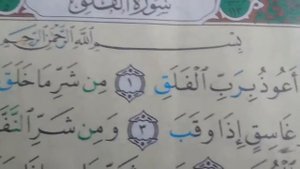 سُورَةُ الْفَلَقِ
بِسْمِ اللَّهِ الرَّحْمَٰنِ الرَّحِيمِ
أَعُوذُ بِرَبِّ الْفَلَقِ ١ مِن شَرِّ مَا خَلَقَ
غَاسِقٍ إِذَا وَقَبَ ٣ وَمِن شَرِّ